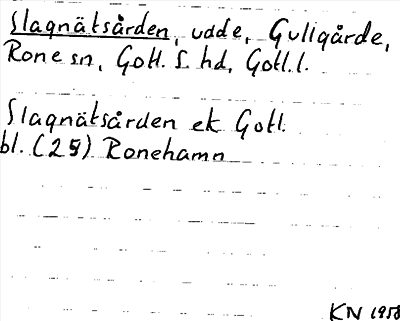 Slagnätsården, udde, Gullgårde,
Rone sn, Gotl. S. hd, Gotl. l.
Slagnätsården ek Gotl.
bl. (29) Ronehamn
KN 1958